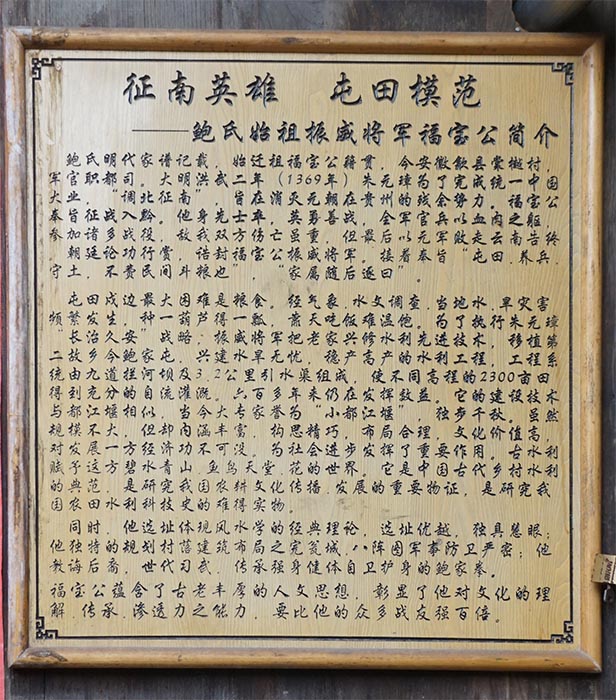 征南英雄 屯田模范
——鲍氏始祖振威将军福宝公简介
鲍氏明代家谱记载，始迁祖福宝公籍贯，今安徽歙县棠樾村，
军官职都司。大明洪武二年（1369年）朱元璋为了完成统一中国
大业，“调北征南”，旨在消灭元朝在贵州的残余势力。福宝公
奉旨征战入黔。他身先士卒，英勇善战，全军官兵以血肉之躯，
参加诸多战役，敌我双方伤亡虽重，但最后以元军败走云南告终
，朝廷论功行赏，诰封福宝公振威将军。接着奉旨“屯田.养兵，
守土，不费民间斗粮也”，“家属随后逐日”。
屯田戍边最大困难是粮食。经气象.水文调查，当地水.旱灾害
频繁发生，种一葫芦得一瓢，靠天吃饭难温饱。为了执行朱元璋
“长治久安”战略，振威将军把老家兴修水利先进技术，移植第
二故乡今鲍家屯，兴建水旱无忧，稳产高产的水利工程，工程系
统由九道拦河坝及3.2公里引水渠组成，使不同高程的2300亩田
得到充分的自流灌溉。六百多年来仍在发挥效益。它的建设技术
与都江堰相似，当今大专家誉为“小都江堰”，独步千秋。虽然
规模不大，但却内涵丰富，构思精巧，布局合理，文化价值高，
对发展一方经济功不可没，为社会进步发挥了重要作用。古水利
赋予这方碧水青山.鱼鸟天堂.花的世界。它是中国古代乡村水利
的典范，是研究我国农耕文化传播.发展的重要物证，是研究我
国农田水利科技史的难得实物。
同时，他选址体现风水学的经典理论，选址优越，独具慧眼；
他独特的规划村落建筑布局之完瓮城，八阵图军事防卫严密；他
教诲后裔，世代习武，传承强身健体自卫护身的鲍家拳。
福宝公蕴含了古老丰厚的人文思想，彰显了他对文化的理
解.传承.渗透力之能力，要比他的众多战友强百倍。